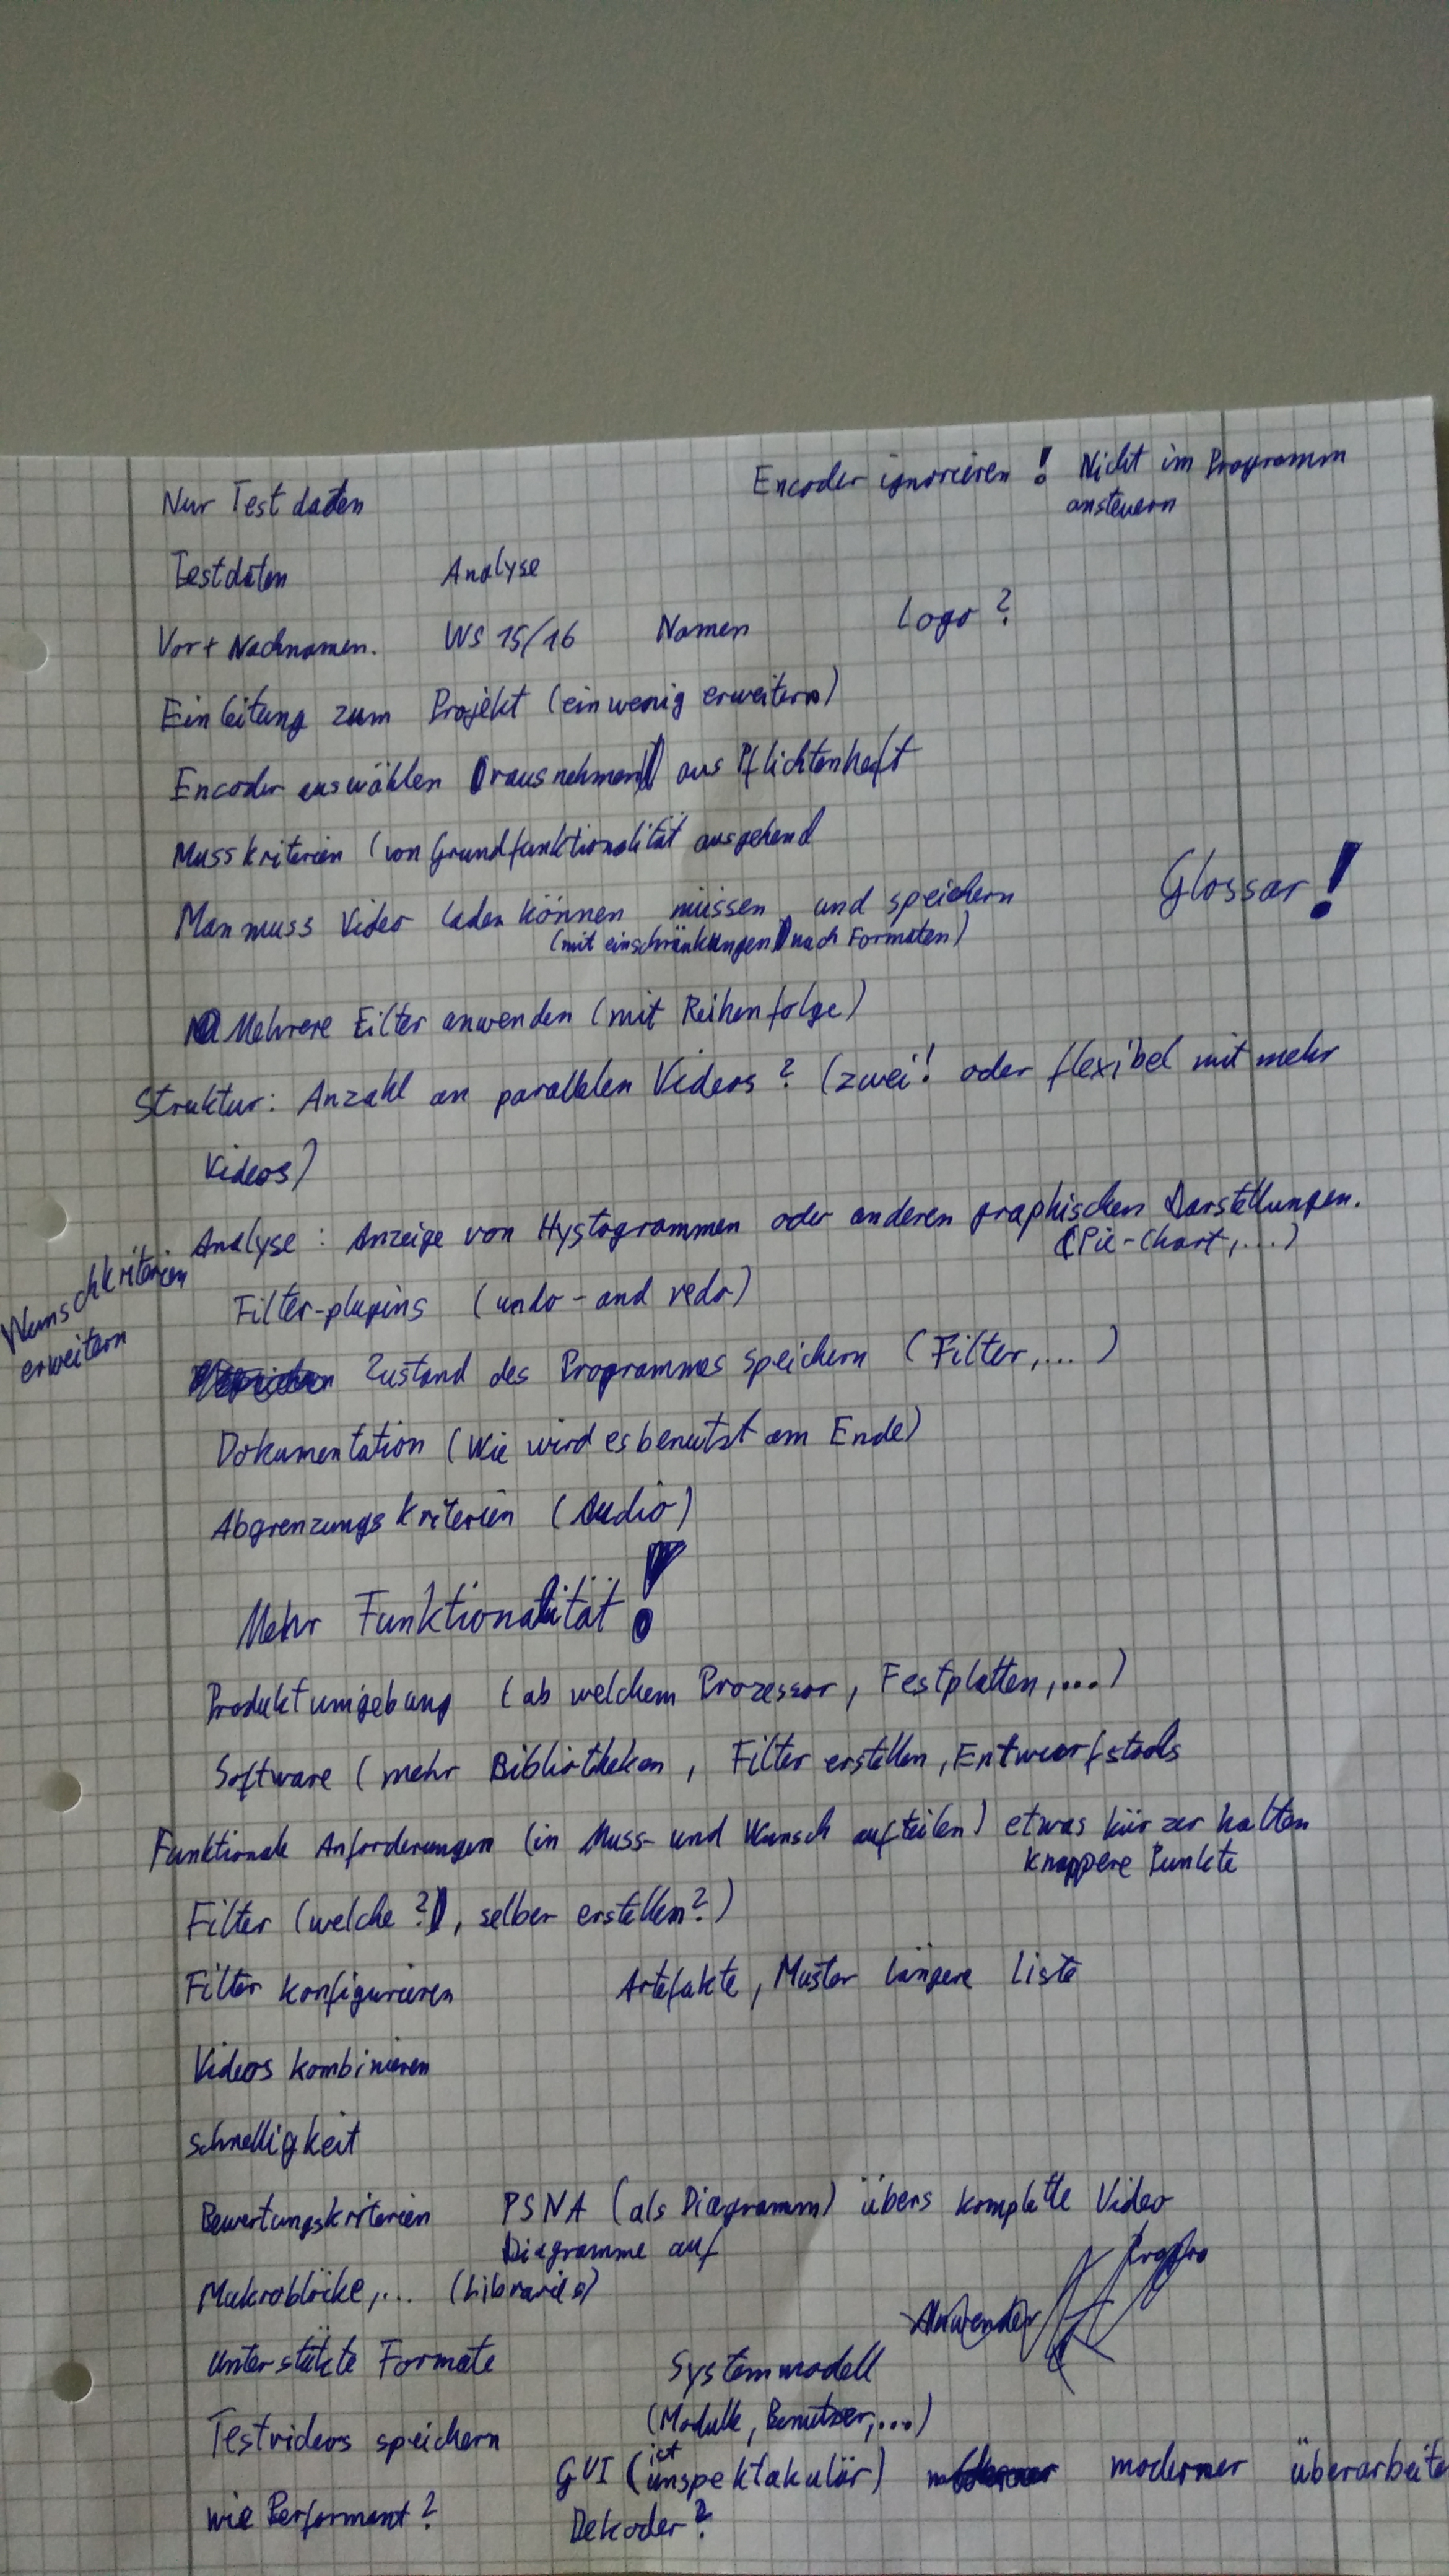 Encoder ignorieren! Nicht im Programm
ansteuern
Nur Testdaten
Testdaten Analyse
Vor + Nachnamen. WS 15/16 Namen Logo?
Einleitung zum Projekt (ein wenig erweitern)
Encoder auswählen rausnehmen aus Pflichtenheft
Musskriterien (von Grundfunktionalität ausgehend
Man muss Video laden können müssen und speichern
(mit einschränkungen nach Formaten)
Glossar!
Mehrere Filter anwenden (mit Reihenfolge)
Struktur: Anzahl an parallelen Videos? (zwei! oder flexibel mit mehr
Videos)
Analyse: Anzeige von Hystogrammen oder anderen graphischen Darstellungen.
(Pie-Chart,...)
Wunschkriterien
erweitern
Filter-plugins (undo- and redo)
Zustand des Programmes speichern (Filter,...)
Dokumentation (Wie wird es benutzt am Ende)
Abgrenzungskriterien (Audio)
Mehr Funktionalität!
Produktumgebung (ab welchem Prozessor, Festplatten,...)
Software (mehr Bibliotheken, Filter erstellen, Entwurfstools
Funktionale Anforderungen (in Muss- und Wunsch aufteilen) etwas kürzer halten
knappere Punkte
Filter (welche?, selber erstellen?)
Filter konfigurieren Artefakte, Muster längere Liste
Videos kombinieren
Schnelligkeit
Bewertungskriterien PSNA (als Diagramm) übers komplette Video
Diagramme auf
Makroblöcke,... (Libraries)
Anwender
Unterstükte Formate Systemmodell
(Module, Benutzer,...)
Testvideos speichern
GUI (ist unspektakulär) moderner überarbeite
Wie Performant? Dekoder?